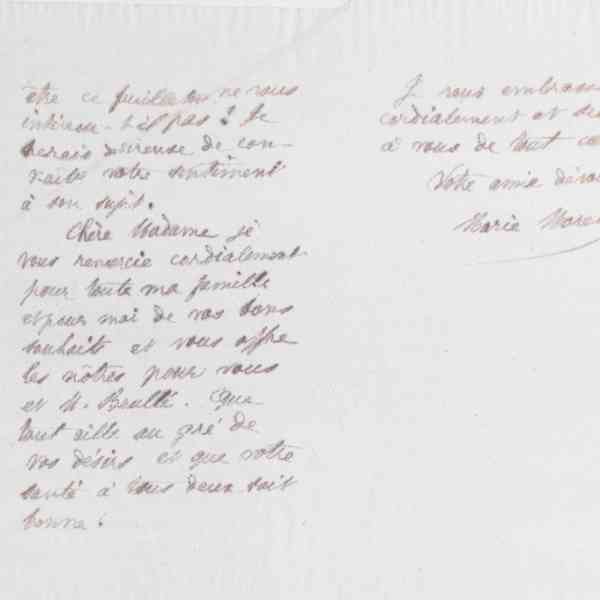 être ce feuilleton ne vous
intéress-t-il pas? Je
serais désireuse de con-
naître votre sentiment
à son sujet.
Chère Madame je
vous remercie cordialement
pour toute ma famille
et pour moi de vos bons
souhaits et vous offre
les nôtres pour vous
et M. Beullé. Que
tout aille au gré de
vos désirs et que votre
santé à tous deux soit
bonne.
Je vous embrass
cordialement et
à vous de tout
Votre amie dévou
Marie More